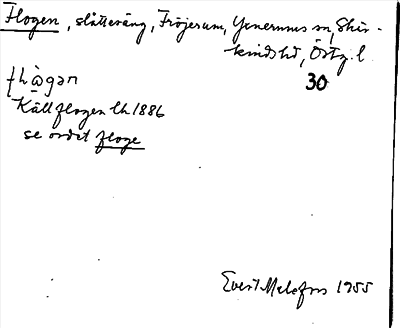 Flogen, slåtteräng, Fröjerum, Yxnerums sn, Skär-
kinds hd, Östg. l.
30
flωgən
Källflogen lk 1886
se ordet floge
Evert Melefors 1955